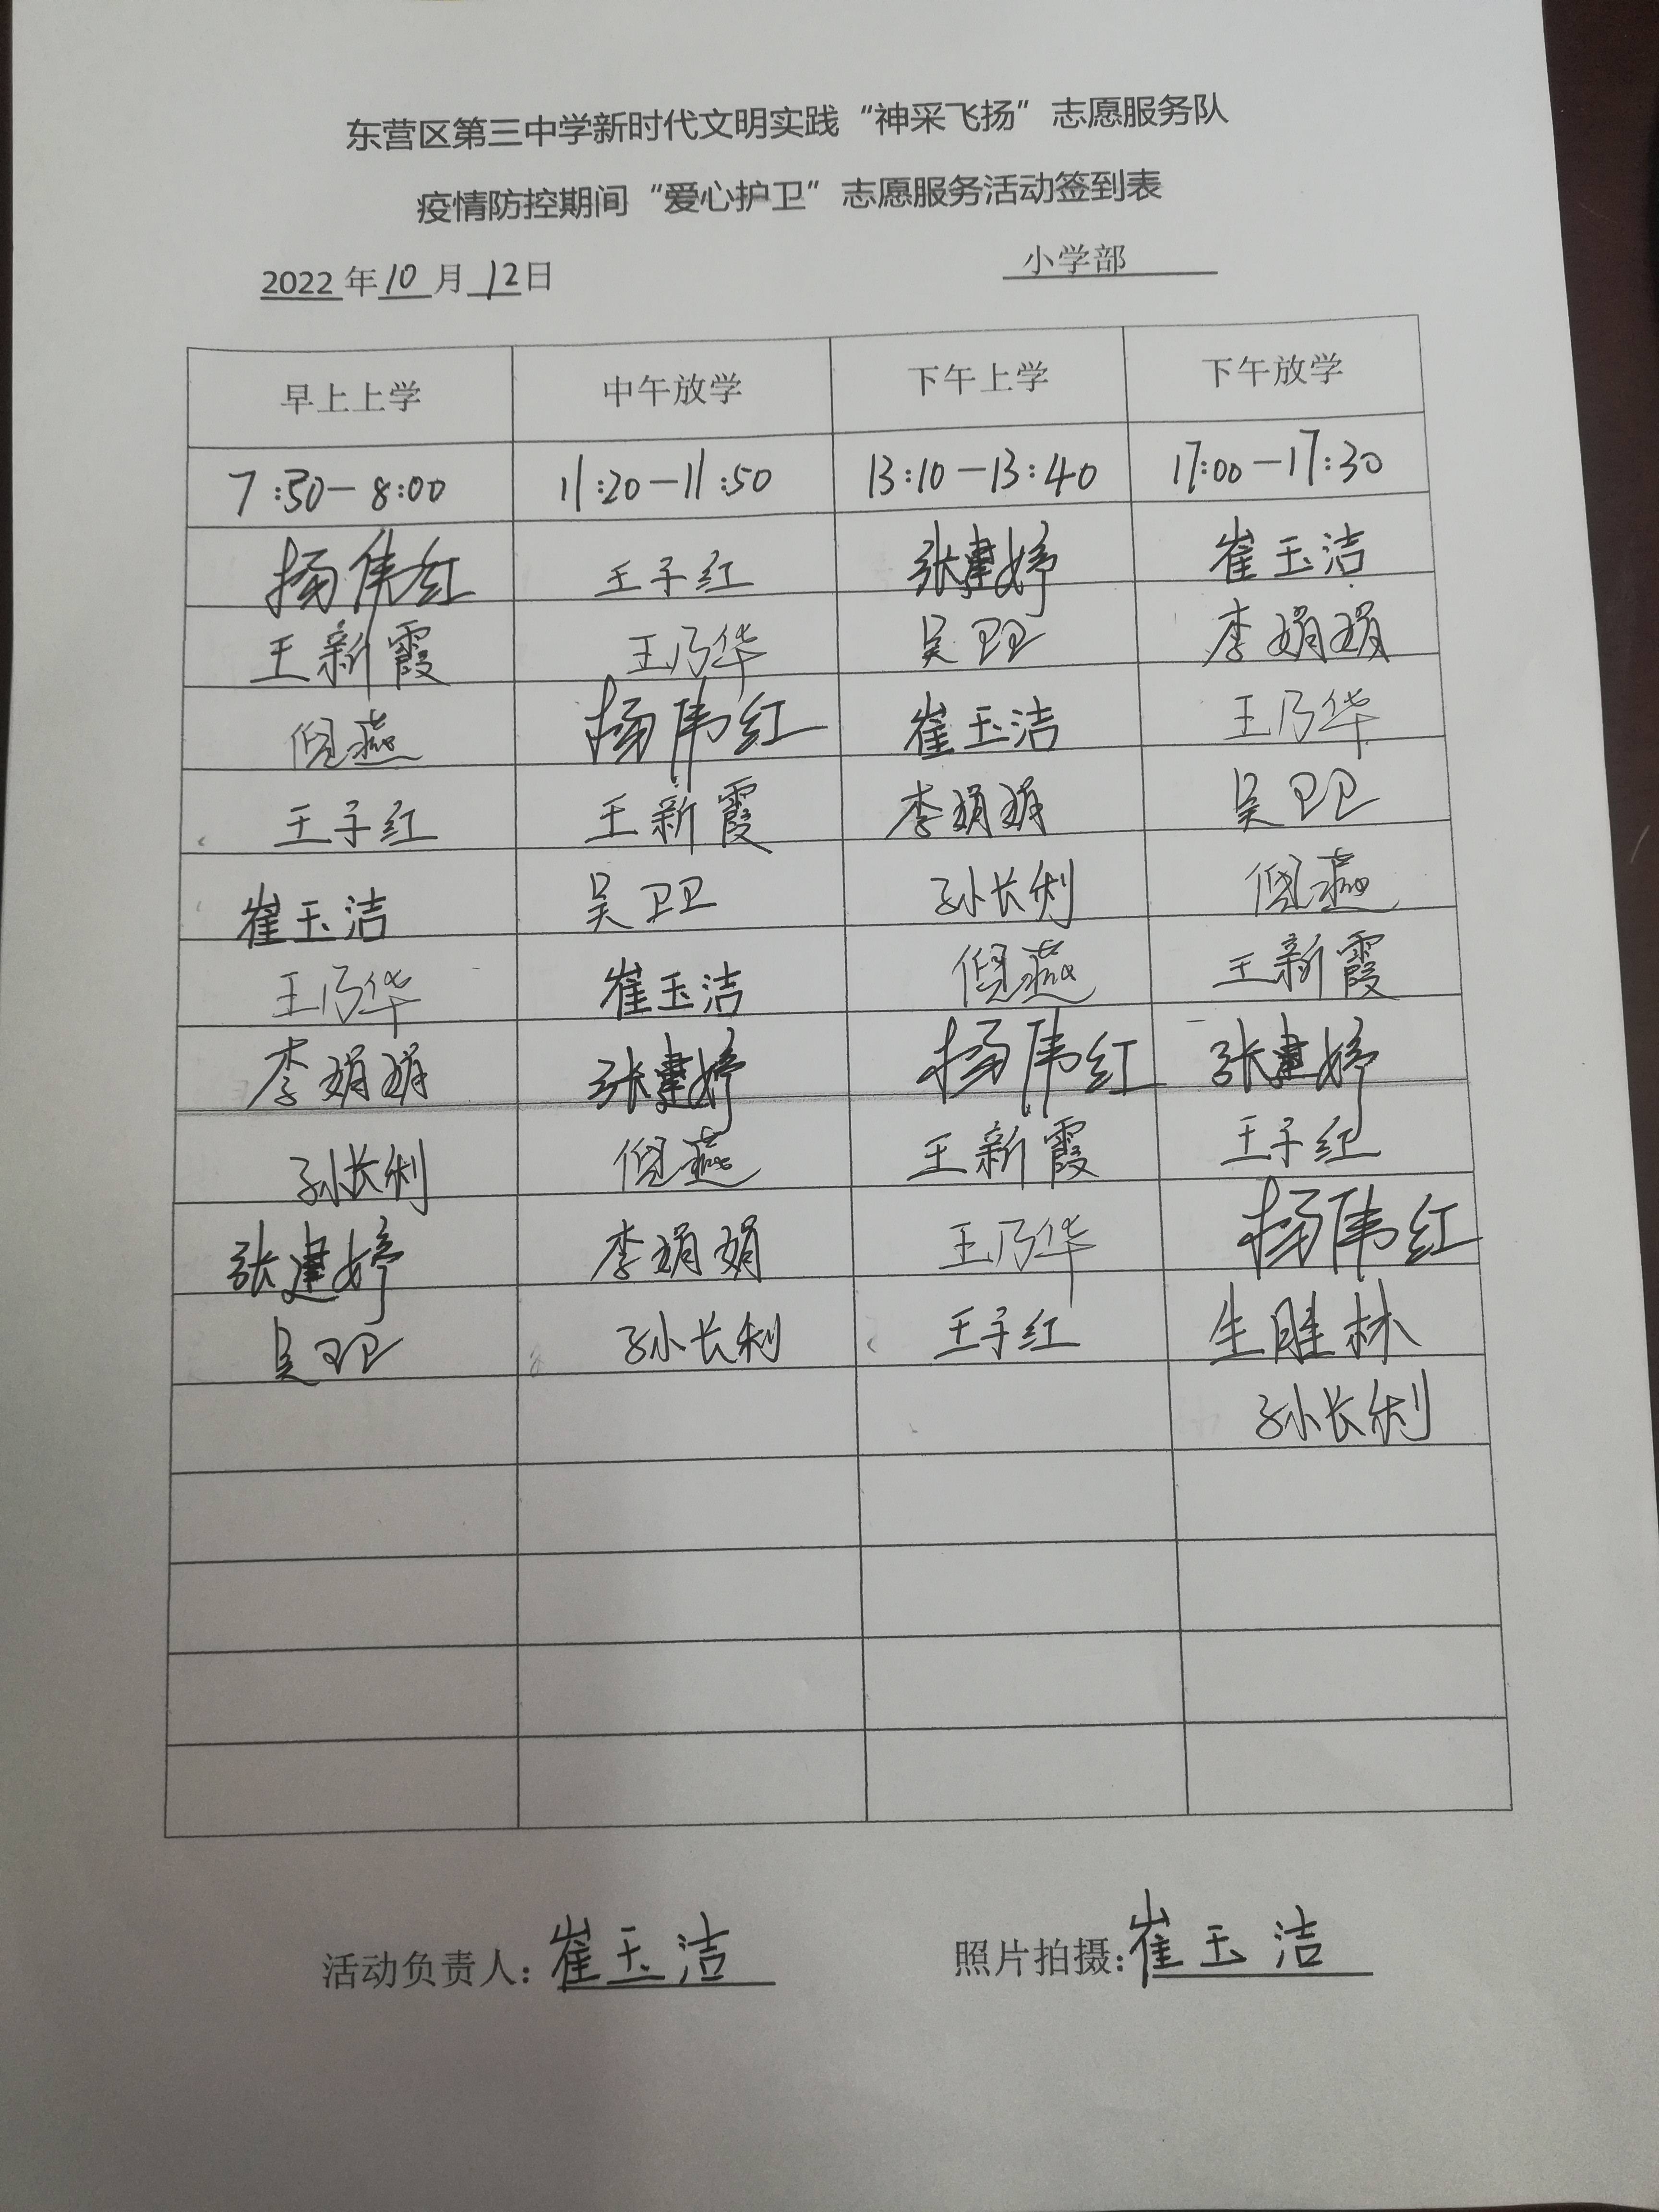 东营区第三中学新时代文明实践“神采飞扬”志愿服务队
疫情防控期间“爱心护卫”志愿服务活动签到表
2022年10月12日 小学部
早上上学 中午放学 下午上学 下午放学
7:30-8:00 11:20-11:50 13:10-13:40 17:00-17:30
杨伟红 王子红 张建婷 崔玉洁
王新霞 王乃华 吴卫卫 李娟娟
倪燕 杨伟红 崔玉洁 王乃华
王子红 王新霞 李娟娟 吴卫卫
崔玉洁 吴卫卫 孙长利 倪燕
王乃华 崔玉洁 倪燕 王新霞
李娟娟 张建婷 杨伟红 张建婷
孙长利 倪燕 王新霞 王子红
张建婷 李娟娟 王乃华 杨伟红
吴卫卫 孙长利 王子红 生胜林
孙长利
活动负责人:崔玉洁 照片拍摄:崔玉洁